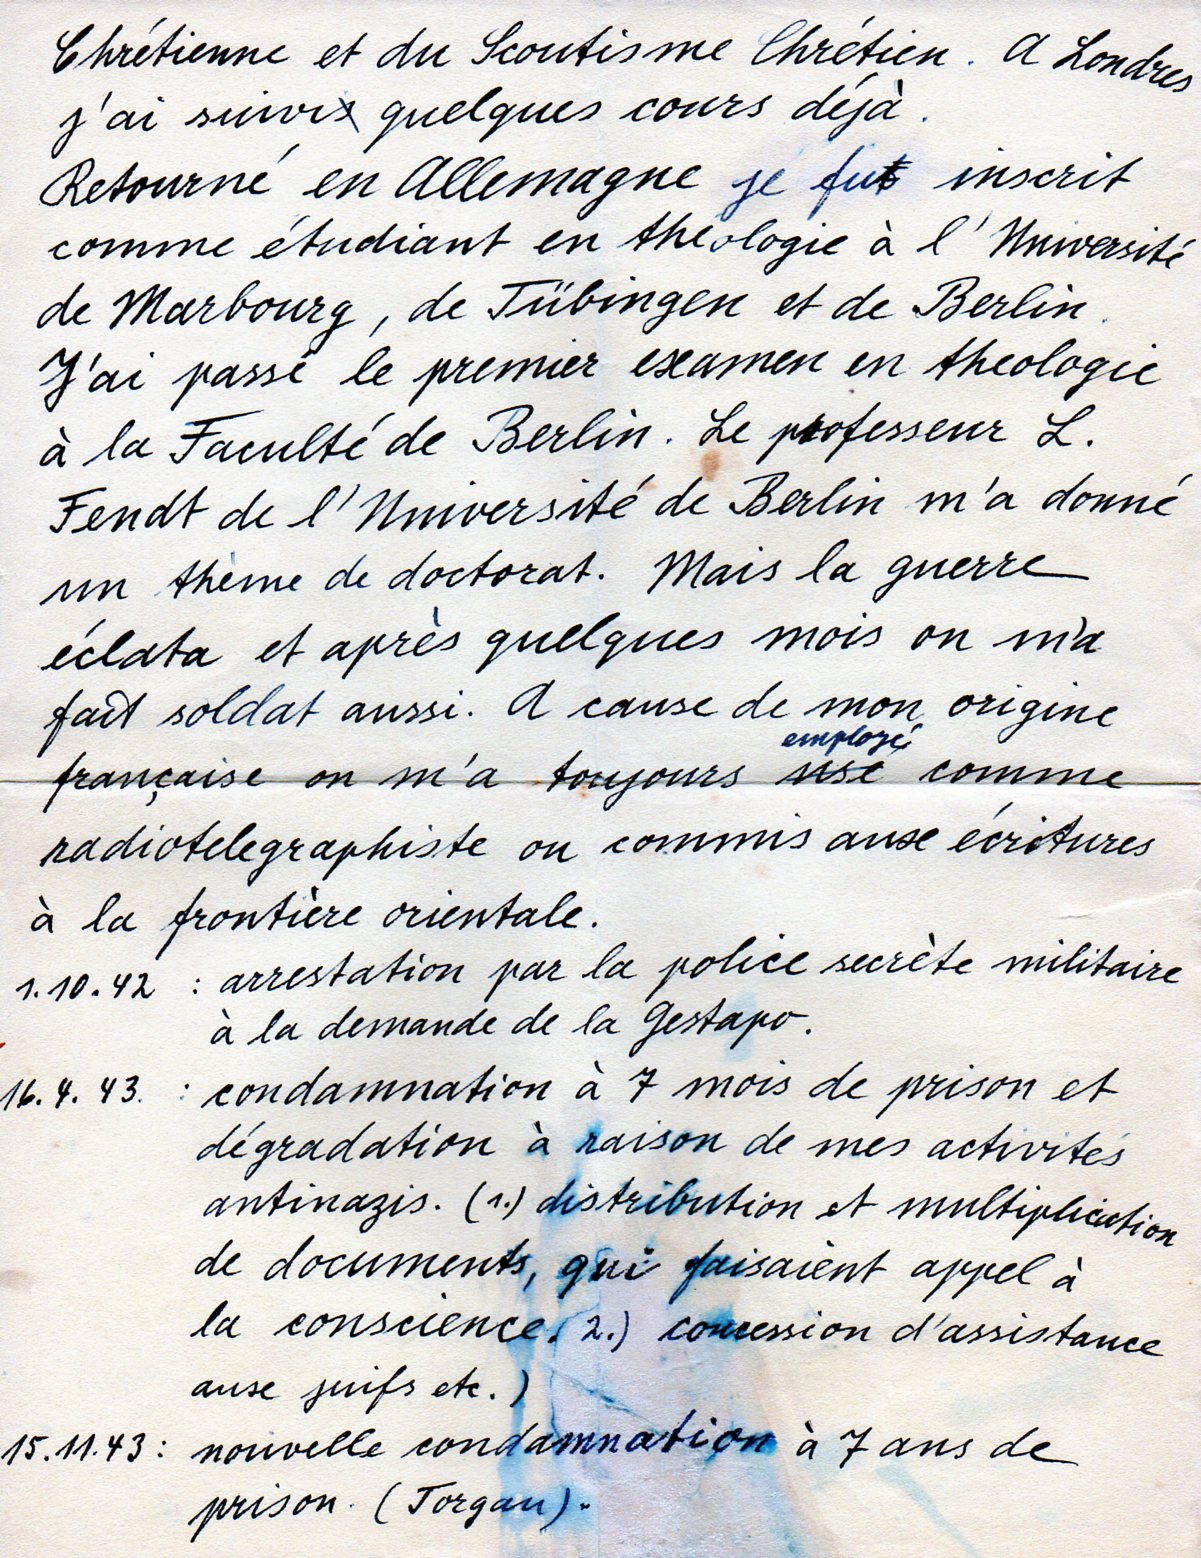 Chrétienne et du Scoutisme Chrétien. A Londres
j'ai suivis quelques cours déjà.
Retourné en Allemagne je fut inscrit
comme étudiant en théologie à l'Université
de Marbourg, de Tübingen et de Berlin.
J'ai passé le premier examen en theologie
à la Faculté de Berlin. Le professeur L.
Fendt de l'Université de Berlin m'a donné
un thème de doctorat. Mais la guerre
éclata et après quelques mois on m'a
fait soldat aussi. A cause de mon origine
employé
française on m'a toujours usé comme
radiotelegraphiste ou commis aux écritures
à la frontière orientale.
1.10.42 : arrestation par la police secrète militaire
à la demande de la Gestapo.
16.4.43. : condamnation à 7 mois de prison et
dégradation à raison de mes activités
antinazis. (1.) distribution et multiplication
de documents, qui faisaient appel à
la conscience. 2.) concession d'assistance
aux juifs etc.)
15.11.43: nouvelle condamnation à 7 ans de
prison. (Torgau).